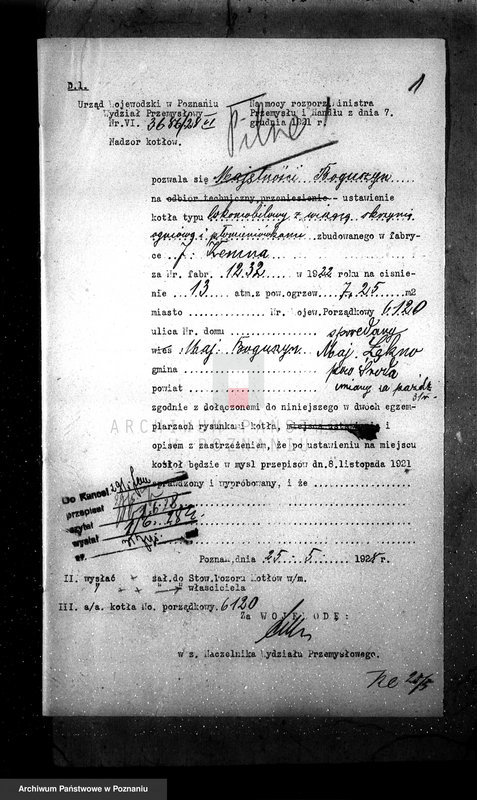 B.1.
1
Urząd Wojewodzki w Poznaniu
Wydział Przemysłowy
Nr.VI. 3686/28 VI
Nadzor kotłów.
Na mocy rozporz. Ministra
Przemysłu i Handlu z dnia 7.
grudnia 1921 r.
Pilne!
pozwala się Majętności Boguszyn
na odbior techniczny, przeniesienie - ustawienie
kotła typu lokomobilowy z wiązą skrzynią
ogniową i płomieniówkami zbudowanego w fabry-
ce J. Zemna
za Nr. fabr. 1232 w 1922 roku na cisnie-
nie 13 atm. z pow. ogrzew. 7,25 m2
miasto Nr. Wojew. Porządkowy 6120
ulica Nr. domu sprzedany
wieś Maj. Boguszyn Maj. Łękno
gmina pow Środa
powiat
zgodnie z dołączonemi do niniejszego w dwuch egzem-
plarzach rysunkami kotła, i
opisem z zastrzeżeniem, że po ustawieniu na miejscu
kotoł będzie w mysl przepisów dn. 8, listopada 1921
sprawdzony i wypróbowany, i że
Do Kancel.
przepisał
czytał 1/6. 28
Poznań, dnia 25 - 5 1928 r.
II. wysłać + zał. do Stow. Dozoru Kotłów w/m.
" + + " właściciela
III. a/a. kotła No. porządkowy. 6120
Za WOJEWODĘ:
w z. Naczelnika Wydziału Przemysłowego.
28/5
ARCHIWUM PAŃSTWOWE
W POZNANIU
Archiwum Państwowe w Poznaniu